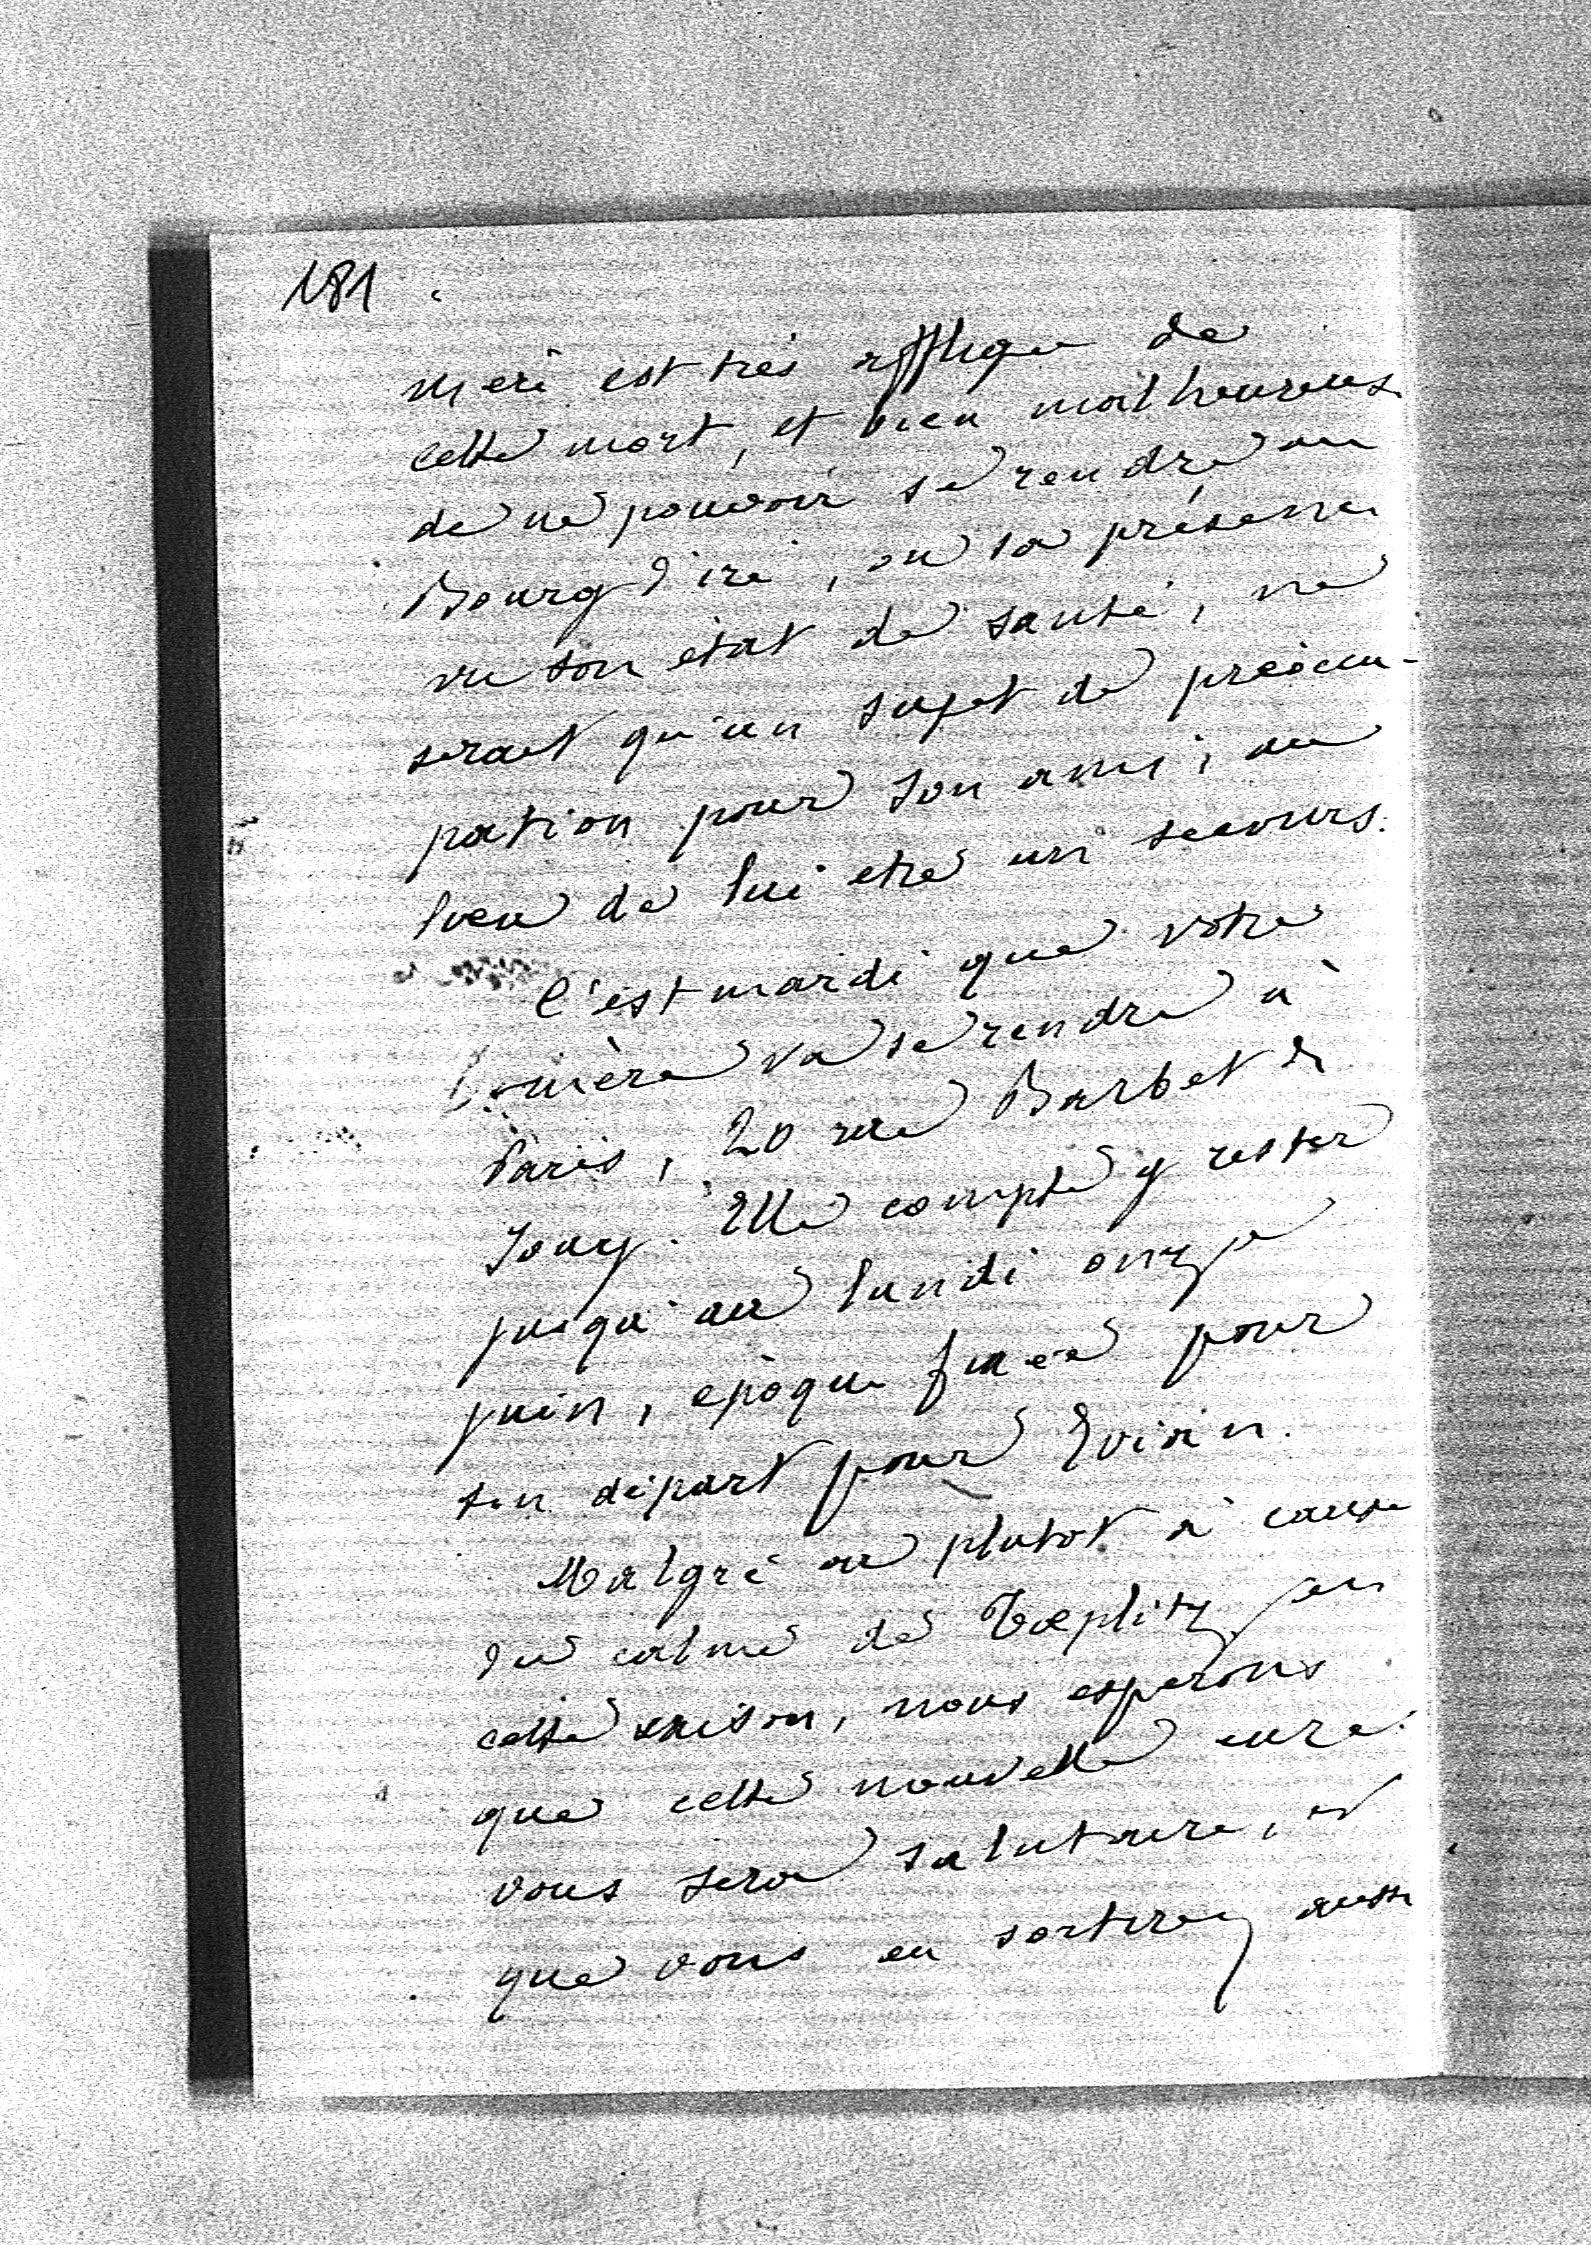 181
meri est très affligé de
cette mort, et bien malheureux
de ne pouvoir se rendre au
Bourg d'iré, où sa présence
vu son état de santé, ne
serait qu'un sujet de préoccu-
pation pour son ami, au
lieu de lui etre un secours.
C'est mardi que votre
va se rendre à
Paris, 20 rue Barbet de
Jouy. Elle compte y rester
jusqu'au lundi onze
juin, époque fixée pour
son départ pour Evian.
Malgré ou plutot à cause
du calme de Tœplitz en
cette saison, nous esperons
que cette nouvelle cure
vous sera salutaire, et
que vous en sortirez aussi